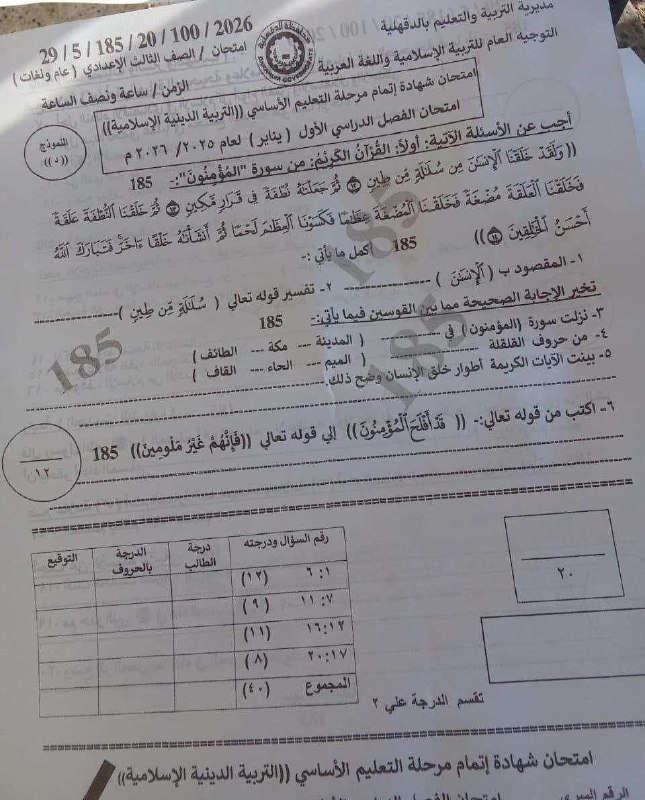 مديرية التربية والتعليم بالدقهلية
التوجيه العام للتربية الإسلامية واللغة العربية
29 / 5 / 185 / 20 / 100 / 2026
امتحان / الصف الثالث الإعدادي ( عام ولغات )
الزمن / ساعة ونصف الساعة
امتحان شهادة إتمام مرحلة التعليم الأساسي ((التربية الدينية الإسلامية))
امتحان الفصل الدراسي الأول ( يناير ) لعام ٢٠٢٥/ ٢٠٢٦ م
النموذج
أجب عن الأسئلة الآتية: أولاً: القُرْآنُ الكَرِيْمُ: من سورة "المُؤْمِنُونَ":- 185
(( وَلَقَدْ خَلَقْنَا الْإِنسَٰنَ مِن سُلَٰلَةٍ مِّن طِينٍ ۝١٢ ثُمَّ جَعَلْنَٰهُ نُطْفَةً فِي قَرَارٍ مَّكِينٍ ۝١٣ ثُمَّ خَلَقْنَا النُّطْفَةَ عَلَقَةً
فَخَلَقْنَا الْعَلَقَةَ مُضْغَةً فَخَلَقْنَا الْمُضْغَةَ عِظَٰمًا فَكَسَوْنَا الْعِظَٰمَ لَحْمًا ثُمَّ أَنشَأْنَٰهُ خَلْقًا ءَاخَرَ فَتَبَارَكَ اللَّهُ
أَحْسَنُ الْخَٰلِقِينَ ۝١٤ )) 185 أكمل ما يأتي :-
١- المقصود ب ( الْإِنسَٰنَ ) ---------- ٢- تفسير قوله تعالي ( سُلَٰلَةٍ مِّن طِينٍ ) ----------
تخير الإجابة الصحيحة مما بين القوسين فيما يأتي:- 185
٣- نزلت سورة (المؤمنون) في ---------- ( المدينة --- مكة --- الطائف )
٤- من حروف القلقلة ---------- ( الميم --- الحاء --- القاف )
٥- بينت الآيات الكريمة أطوار خلق الإنسان وضح ذلك ----------
185
185
٦- اكتب من قوله تعالي:- (( قَدْ أَفْلَحَ الْمُؤْمِنُونَ)) إلي قوله تعالي ((فَإِنَّهُمْ غَيْرُ مَلُومِينَ)) 185
١٢
رقم السؤال ودرجته درجة الطالب الدرجة بالحروف التوقيع
٦:١ (١٢)
١١:٧ (٩)
١٦:١٢ (١١)
٢٠:١٧ (٨)
المجموع (٤٠)
٢٠
تقسم الدرجة علي ٢
امتحان شهادة إتمام مرحلة التعليم الأساسي ((التربية الدينية الإسلامية))
الرقم السري